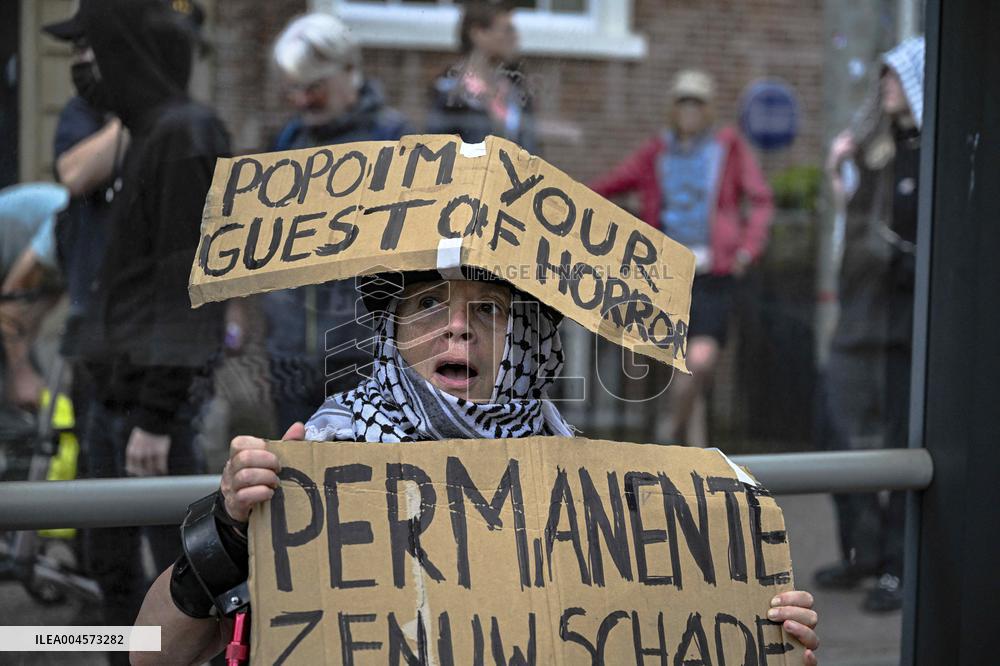 POPO I'M YOUR
GUEST OF HORROR
IMAGE LINK GLOBAL
ILG
PERMANENTE
ZENUWSCHADE
ILEA004573282